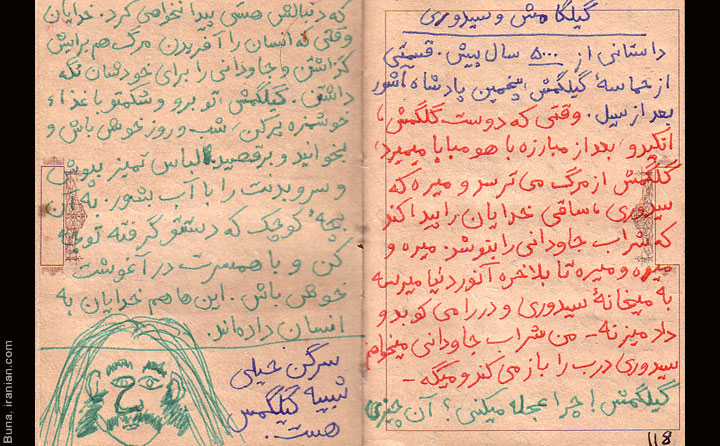 گیلگامش و سیدوری
داستانی از ۵۰۰۰ سال پیش. قسمتی
از حماسهٔ گیلگمش، پنجمین پادشاه آشور
بعد از سیل. وقتی که دوست گلگمش،
انکیدو بعد از مبارزه با هومبابا میمیرد،
گلگمش از مرگ می ترسد و میره که
سیدوری، ساقی خدایان را پیدا کند
که شراب جاودانی را بنوشد. میره و
میره و میره تا بلاخره آنور دنیا میرسه
به میخانهٔ سیدوری و در را می کوبد و
داد میزنه - من شراب جاودانی میخوام
سیدوری درب را باز می کند و میگه -
گیلگمش! چرا عجله میکنی؟ آن چیزی
۱۱۸
که دنبالش هستی پیدا نخواهی کرد. خدایان
وقتی که انسان را آفریدن مرگ هم برایش
گذاشتن و جاودانی را برای خودشان نگه
داشتن. گیلگمش، تو برو و شکمتو با غذاء
خوشمزه پر کن، شب و روز خوش باش و
بخوانید و برقصید. لباس تمیز بپوش
و سر و بدنت را با آب بشور. به آن
بچهٔ کوچک که دستتو گرفته توجه
کن و با همسرت در آغوشت
خوش باش. این ها هم خدایان به
انسان داده اند.
سرگن خیلی
شبیه گیلگمش
هست.
Buna, iranian.com